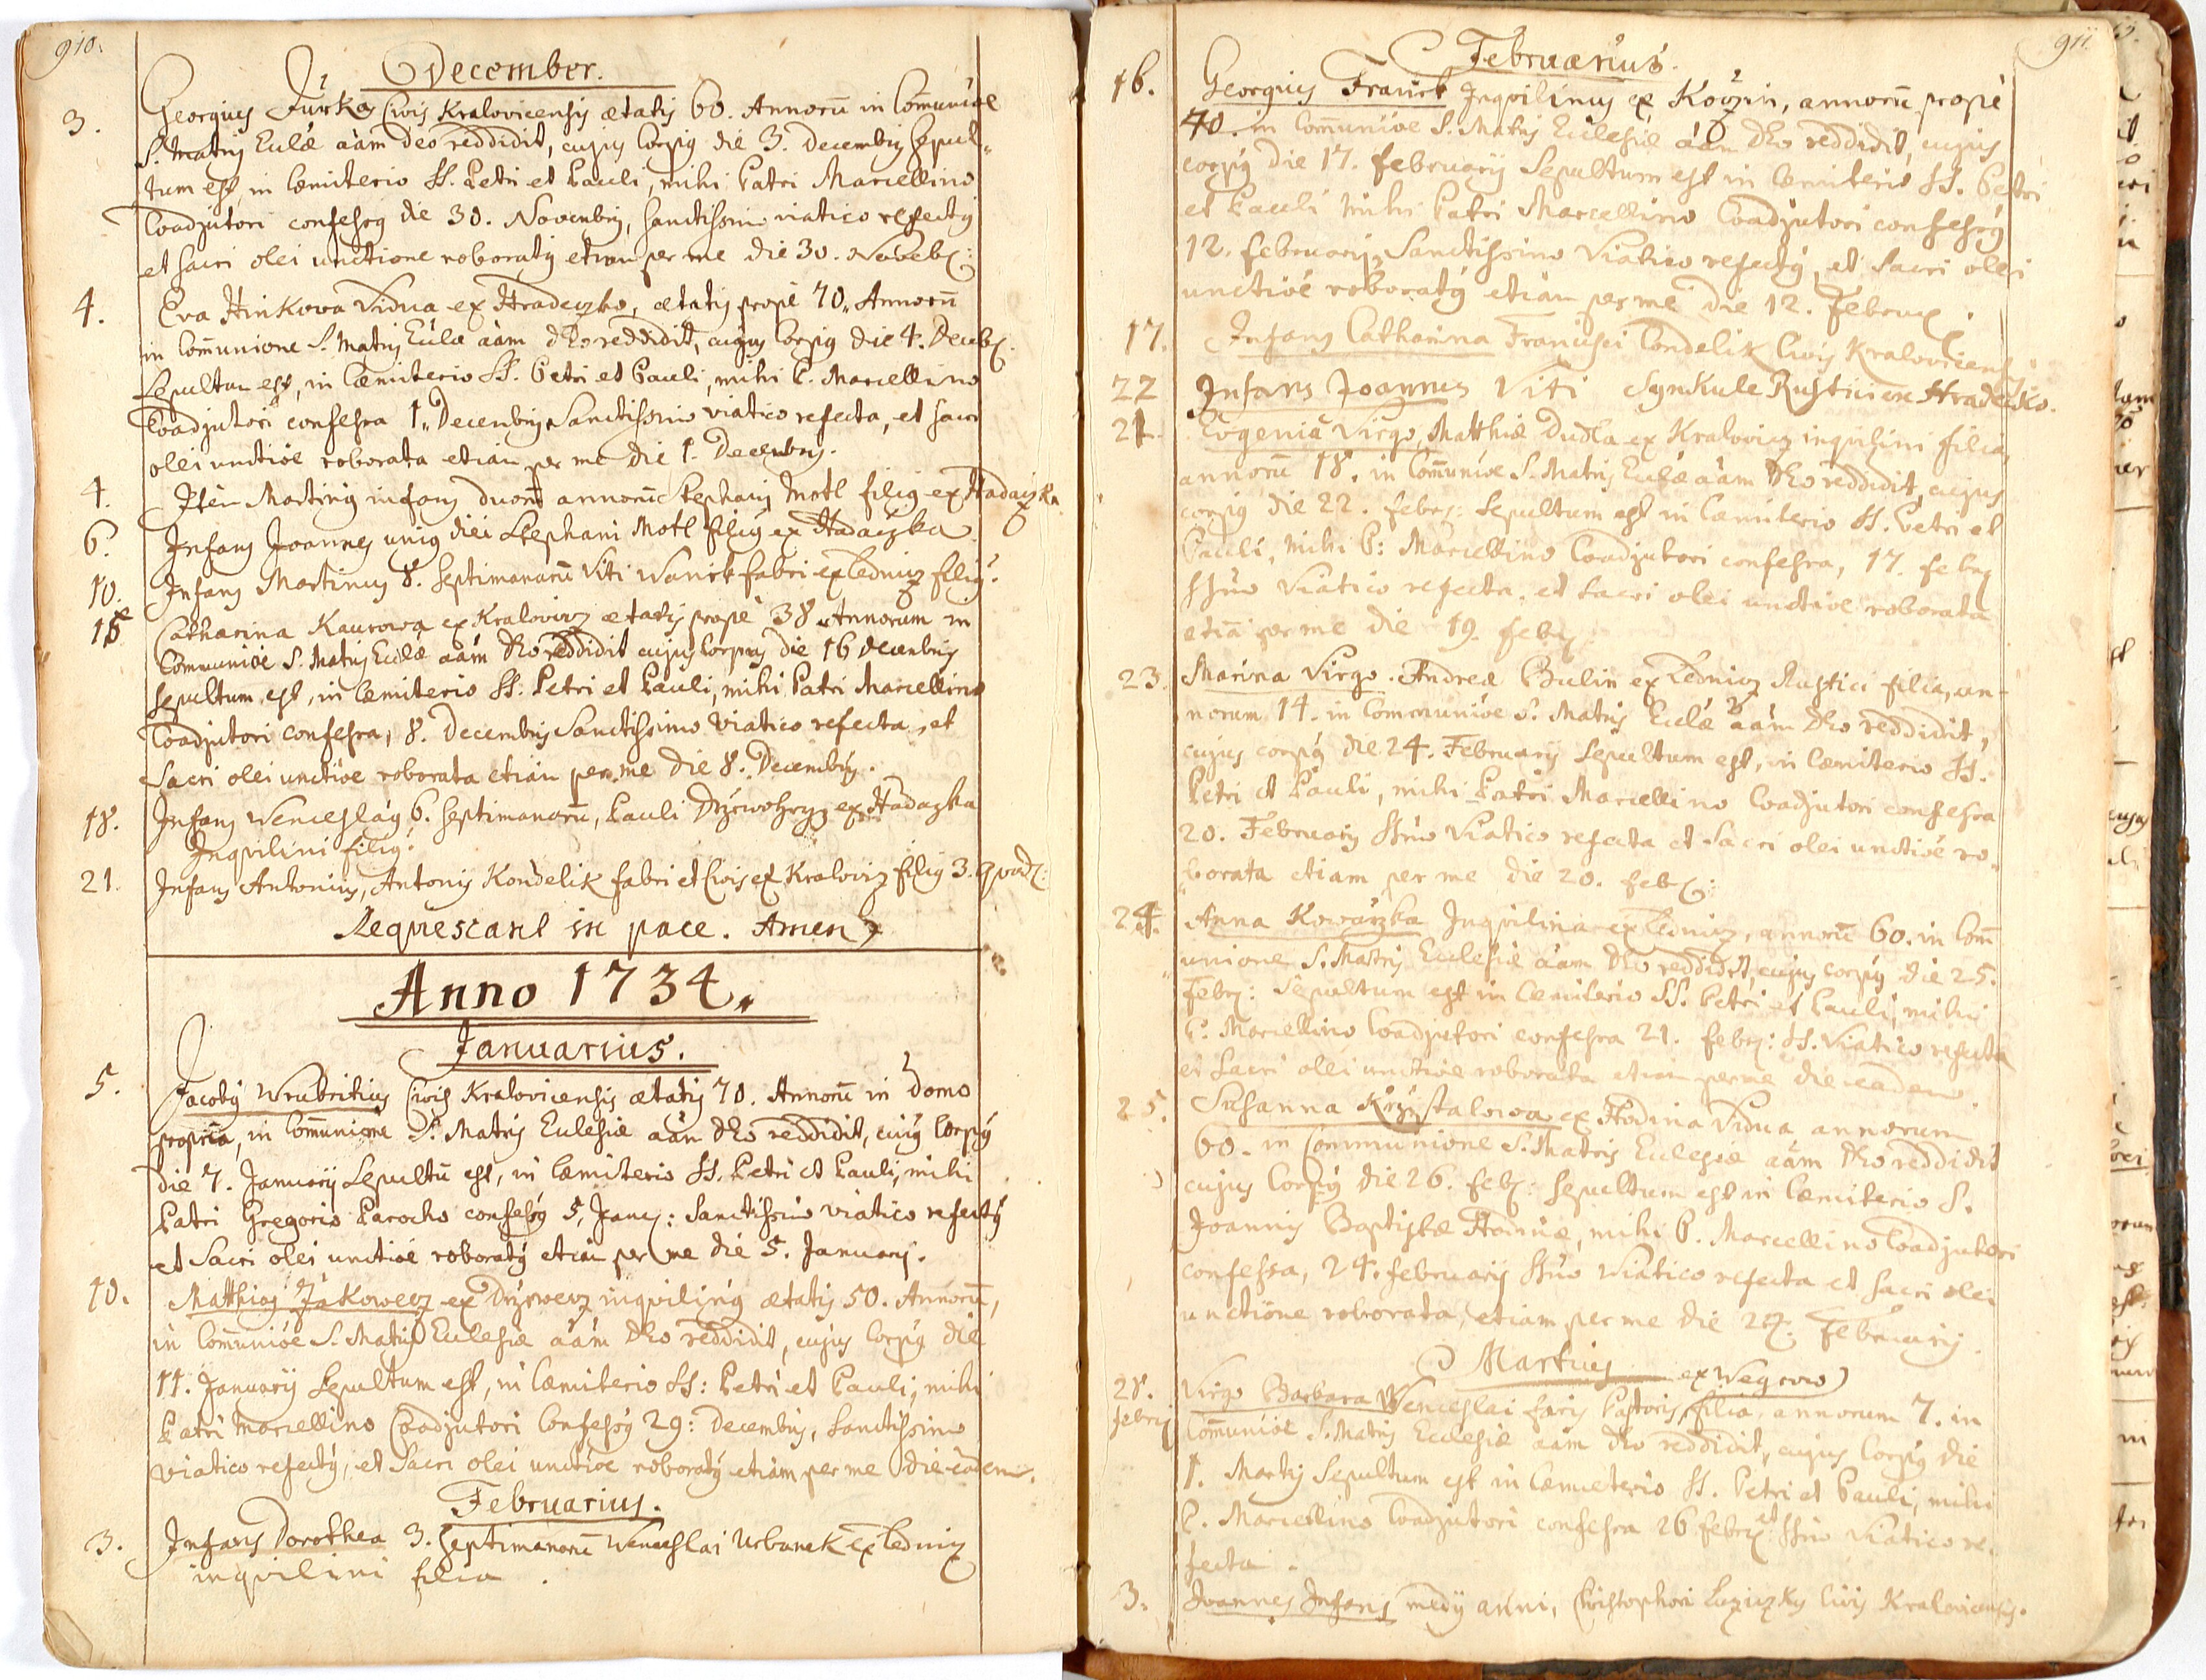 910.
December.
3. Georgius Jurka Civis Kralovicensis ætatis 60. Annorũ in Com̃unióe
S. Matris Eccłæ aám deo reddidit, cujus Corpus die 3. Decembris sepul„
tum est, in Cœmiterio SS. Petri et Pauli, mihi Patri Marcellino
Coadjutori confessus die 30. Novembris, sanctissimo viatico refectus
et sacri olei unctione roboratus etiam per me die 30. Novēb:
4. Eva Hinkova Vidua ex Hradeczko, ætatis propè 70. Annorũ
in Com̃unione S. Matris Eccłæ aám dEo reddidit, cujus Corpus die 4. Decēb.
Sepultum est, in Cœmiterio SS. Petri et Pauli, mihi P. Marcellino
Coadjutori confessa 1. Decembris Sanctissimo viatico refecta, et sacri
olei unctióe roborata etiam per me die 1. Decembris.
4. Item Martinus infans duorũ annorũ Stephani Motl filius ex Hadaczka
6. Infans Joannes unius diei Stephani Motl filius ex Hadaczka
10. Infans Martinus 8. septimanarũ Viti Wanick fabri ex Lednicz filius.
15 Catharina Kaurowa ex Kralovicz ætatis propè 38 Annorum in
Com̃unióe S. Matris Eccłæ aám dEo reddidit cujus Corpus die 16 Decembris
sepultum est, in Cœmiterio SS. Petri et Pauli, mihi Patri Marcellino
Coadjutori confessa, 8. Decembris Sanctissimo Viatico refecta, et
Sacri olei unctióe roborata etiam per me die 8. Decembris.
18. Infans Wenceslaus 6. septimanarũ, Pauli Drzewohryz ex Hadaczka
Inqvilini filius.
21. Infans Antonius, Antonii Kondelik fabri et Civis ex Kralovicz filius 3.
Requiescant in pace. Amen
Anno 1734.
Januarius.
5. Jacobus Wrubritius Civis Kralovicensis ætatis 70. Annorũ in Domo
propria, in Com̃unione S. Matris Ecclesiæ aám dEo reddidit, cujus Corpus
die 7. Januarii Sepultũ est, in Cœmiterio SS. Petri et Pauli, mihi
Patri Gregorio Parocho confessus 5. Janu: Sanctissimo viatico refectus
et Sacri olei unctióe roboratus etiam per me die 5. Januarii.
10. Matthias Jakowecz ex Drzewecz inqvilinus ætatis 50. Annorũ,
in Com̃unióe S. Matris Ecclesiæ aám dEo reddidit, cujus Corpus die
11. Januarii Sepultum est, in Cœmiterio SS: Petri et Pauli, mihi
Patri Marcellino Coadjutori Confessus 29: Decembris, Sanctissimo
viatico refectus, et Sacri olei unctióe roboratus etiam per me die eadem.
Februarius.
3. Infans Dorothea 3. septimanarũ Wenceslai Urbanek ex Lednicz
inqvilini filia.
911.
Februarius.
16. Georgius Franck Inqvilinus ex Kożin, annorũ propè
40. in Com̃unióe S. Matris Ecclesiæ aám dEo reddidit, cujus
corpus die 17. februarii Sepultum est in Cœmiterio SS. Petri
et Pauli mihi Patri Marcellino Coadjutori confessus
12. februarii, Sanctissimo Viatico refectus, et Sacri olei
unctióe roboratus etiam per me die 12. februarii.
17. Infans Catharina Francisci Condelik Civis Kralovicens
22 Infans Joannes Viti Synkule Rustici ex Hradeczko.
21. Eugenia Virgo, Matthiæ Dudla ex Kralovicz inqvilini filia,
annorũ 18. in Com̃unióe S. Matris Eccłæ aám dEo reddidit, cujus
corpus die 22. febr: Sepultum est in Cœmiterio SS. Petri et
Pauli, mihi P: Marcellino Coadjutori confessa, 17. febr
SSmo Viatico refecta, et sacri olei unctióe roborata
etiã per me die 19. febr
23. Marina Virgo. Andreæ Bulin ex Lednicz Rustici filia, an-
norum 14. in Communióe S. Matris Eccłæ aám dEo reddidit,
cujus corpus die 24. Februarii Sepultum est, in Cœmiterio SS.
Petri et Pauli, mihi Patri Marcellino Coadjutori confessa
20. Februarii SSmo Viatico refecta et Sacri olei unctióe ro„
borata etiam per me die 20. feb:
24. Anna Kowarzka Inqvilina ex Lednicz, annorũ 60. in Com̃
unione S. Matris Ecclesiæ aám dEo reddidit, cujus corpus die 25.
Febr: Sepultum est in Cœmiterio SS. Petri et Pauli, mihi
P. Marcellino Coadjutori confessa 21. febr: SS. Viatico refecta
et Sacri olei unctióe roborata etiam per me die eadem.
25. Susanna Krzystalowa ex Hodina Vidua annorum
60. in Communione S. Matris Ecclesiæ aám dEo reddidit
cujus Corpus die 26. feb: sepultum est in Cœmiterio S.
Joannis Baptistæ Hodinæ, mihi P. Marcellino Coadjutori
confessa, 24. februarii SSmo Viatico refecta et sacri olei
unctione roborata, etiam per me die 24. Februarii.
Martius
28. febris Virgo Barbara Wenceslai Pastoris, filia ex Wegrow annorum 7. in
Com̃unióe S. Matris Ecclesiæ aám dEo reddidit, cujus Corpus die
1. Martii Sepultum est in Cœmeterio SS. Petri et Pauli, mihi
P. Marcellino Coadjutori confessa 26 febr: et SSmo Viatico re„
fecta.
3. Joannes Infans medii anni, Christophori Civis Kralovicensis.